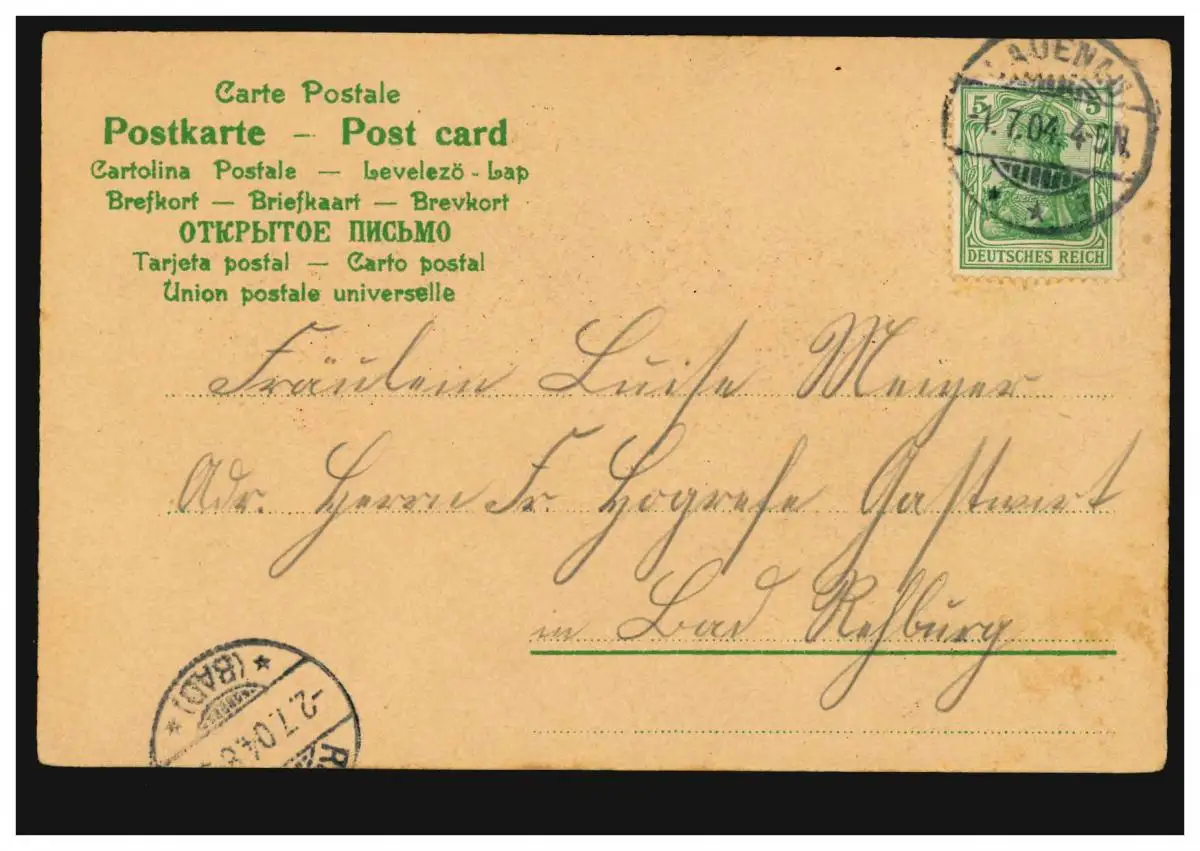 Carte Postale
Postkarte – Post card
Cartolina Postale — Levelezö - Lap
Brefkort — Briefkaart — Brevkort
ОТКРЫТОЕ ПИСЬМО
Tarjeta postal — Carto postal
Union postale universelle
LAUENAU
5 5
-1. 7. 04. 4-5N.
DEUTSCHES REICH
Fräulein Luise Meiyer
Adr. Herrn Fr. Hogrefe Gastwirt
in Bad Rehburg
(BAD)
-2.7.04.8-